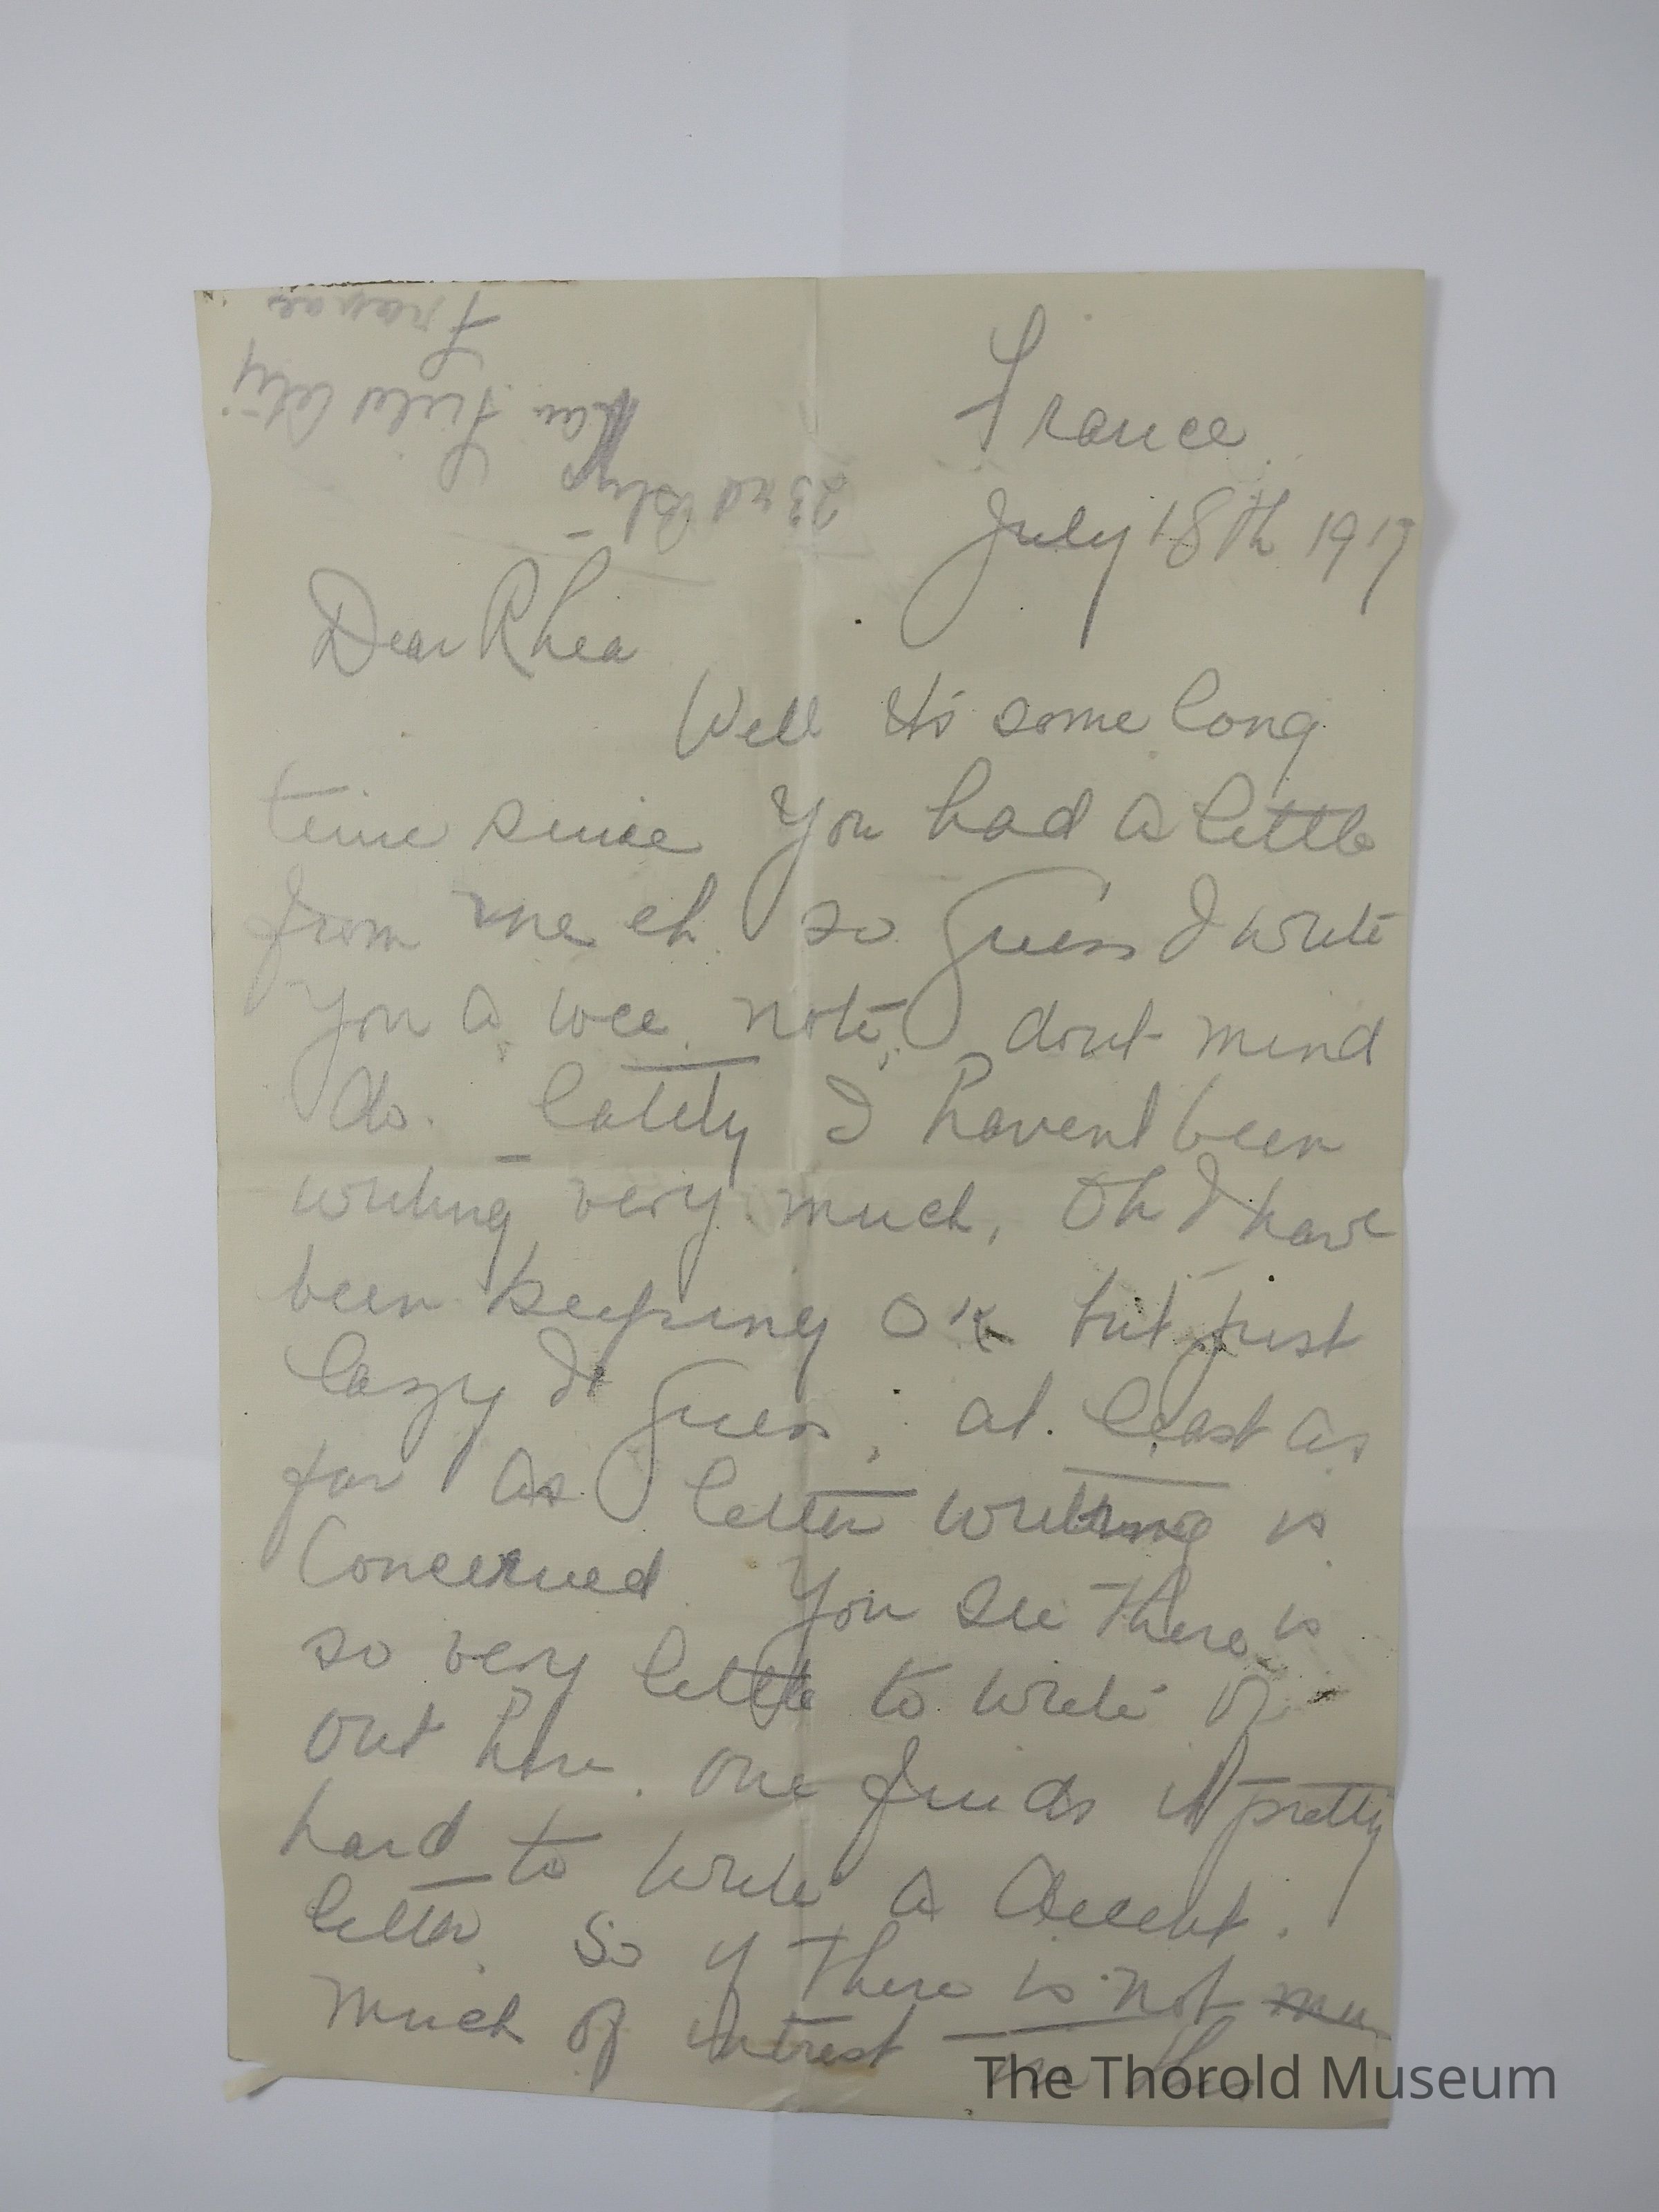 France
July 18th 1917
23rd Bty
Can Field Arty
France
Dear Rhea
Well its some long
time since you had a little
from me eh so guess I write
you a wee note dont mind
do. lately I havent been
writing very much, Oh I have
been keeping OK but just
lazy I guess, at least as
far as letter writing is
Concerned You see there is
so very little to write of
out here. one finds it pretty
hard to write a decent.
letter. So if there is not mu
much of intrest in the
The Thorold Museum